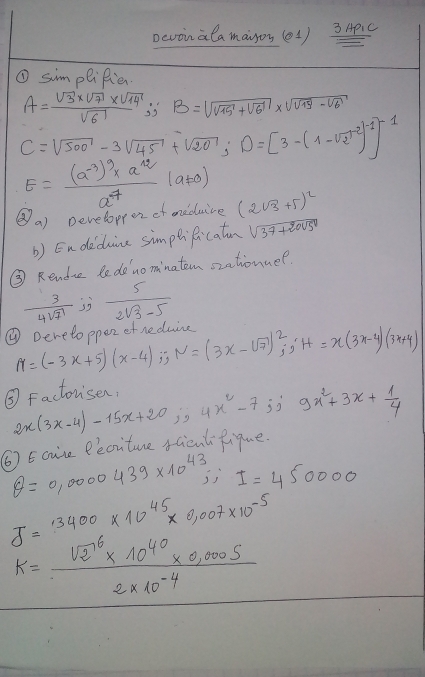 Devoir à la maison (01) 3 APIC
① Simplifier
A = (√3 × √7 × √14) / √6 ;; B = √(√15 + √6) × √(√15 - √6)
C = √500 - 3√45 + √20 ; D = [3 - (1 - √2⁻²)⁻¹]⁻¹
E = ((a⁻³)⁹ × a¹²) / a⁷ (a≠0)
② a) Developper et réduire (2√3 + 5)²
b) En déduire simplification √(37 + 20√3)
③ Rendre le dénominateur rationnel.
3 / (4√7) ;; 5 / (2√3 - 5)
④ Developper et reduire
M = (-3x + 5)(x - 4) ;; N = (3x - √7)² ;; H = x(3x - 4)(3x + 4)
⑤ Factoriser.
2x(3x - 4) - 15x + 20 ;; 4x² - 7 ;; 9x² + 3x + 1/4
⑥ Ecrire l'écriture scientifique.
= 0,0000 439 × 10⁴³ ;; I = 450000
J = 3400 × 10⁴⁵ × 0,007 × 10⁻⁵
K = (√2⁶ × 10⁴⁰ × 0,0005) / (2 × 10⁻⁴)